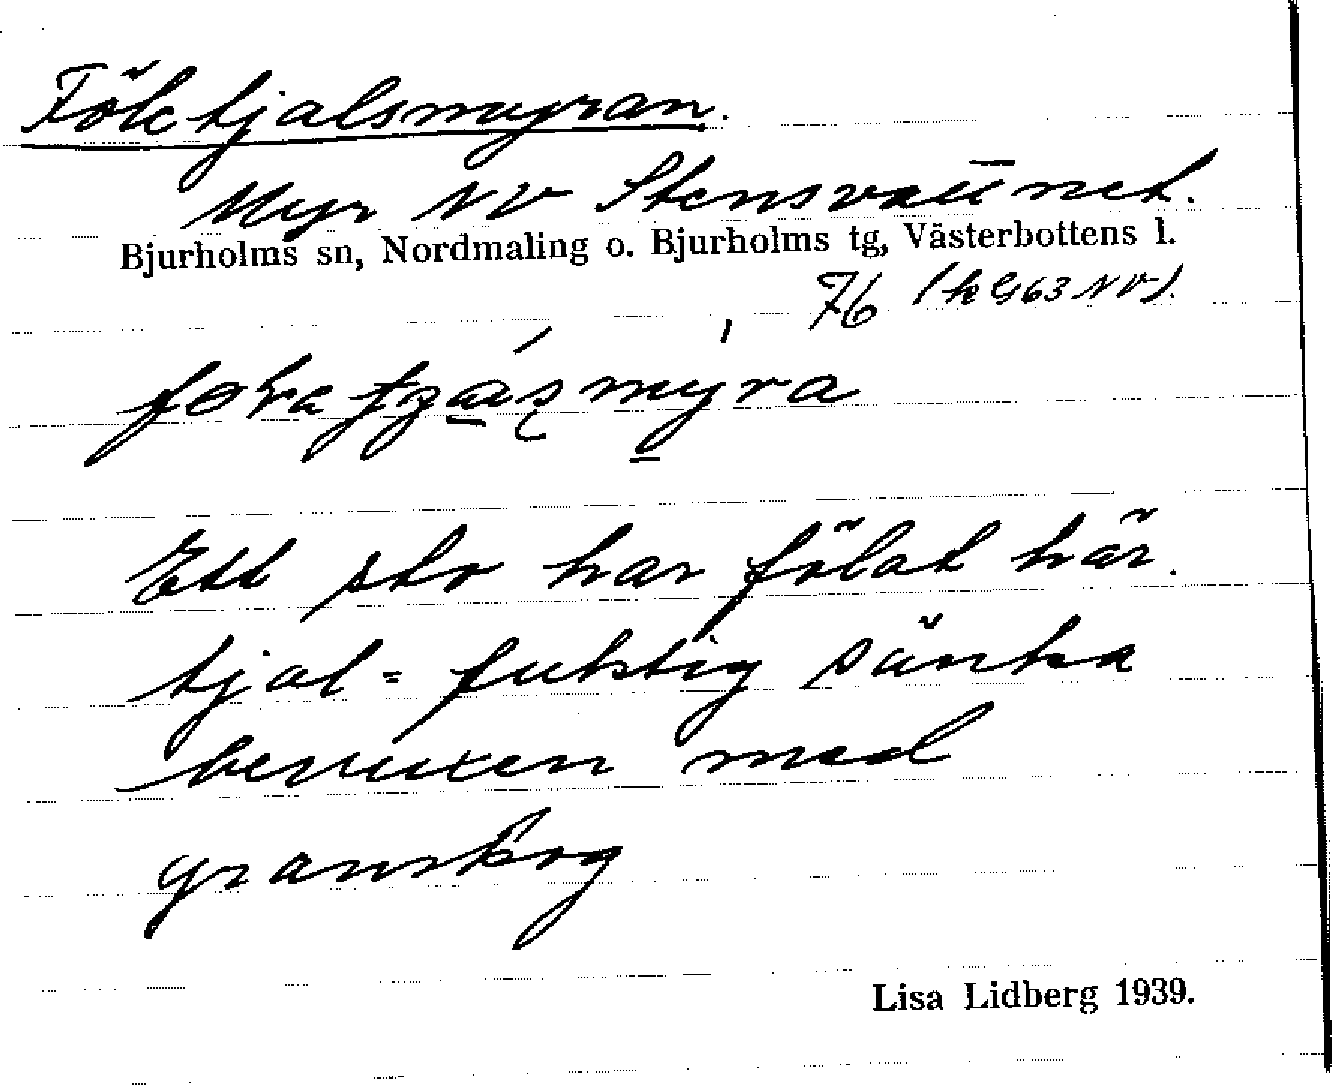 Fölktjalsmyran.
Myr NV Stensvattnet.
Bjurholms sn, Nordmaling o. Bjurholms tg, Västerbottens l.
76 (k G63 NV).
Ett sto har fölat här.
tjal = fuktig sänka
bevuxen med
granskog
Lisa Lidberg 1939.